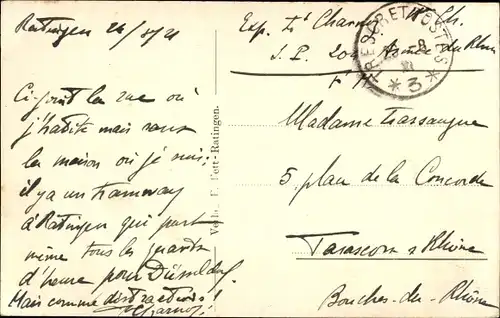 Ratingen 26/8/21
Ci-joint la rue où
j'habite mais sans
la maison où je suis;
il y a un tramway
à Ratingen qui part
même tous les quarts
d'heure pour Düsseldorf.
Mais comme distractions!
Charnoz
Verlag Pett-Ratingen.
Exp. Lt Charnoz
S.P. 204 Armée du Rhin
TRESOR ET POSTES
* 3 *
Madame Trassaygue
5, place de la Concorde
Tarascon s/ Rhône
Bouches-du-Rhône